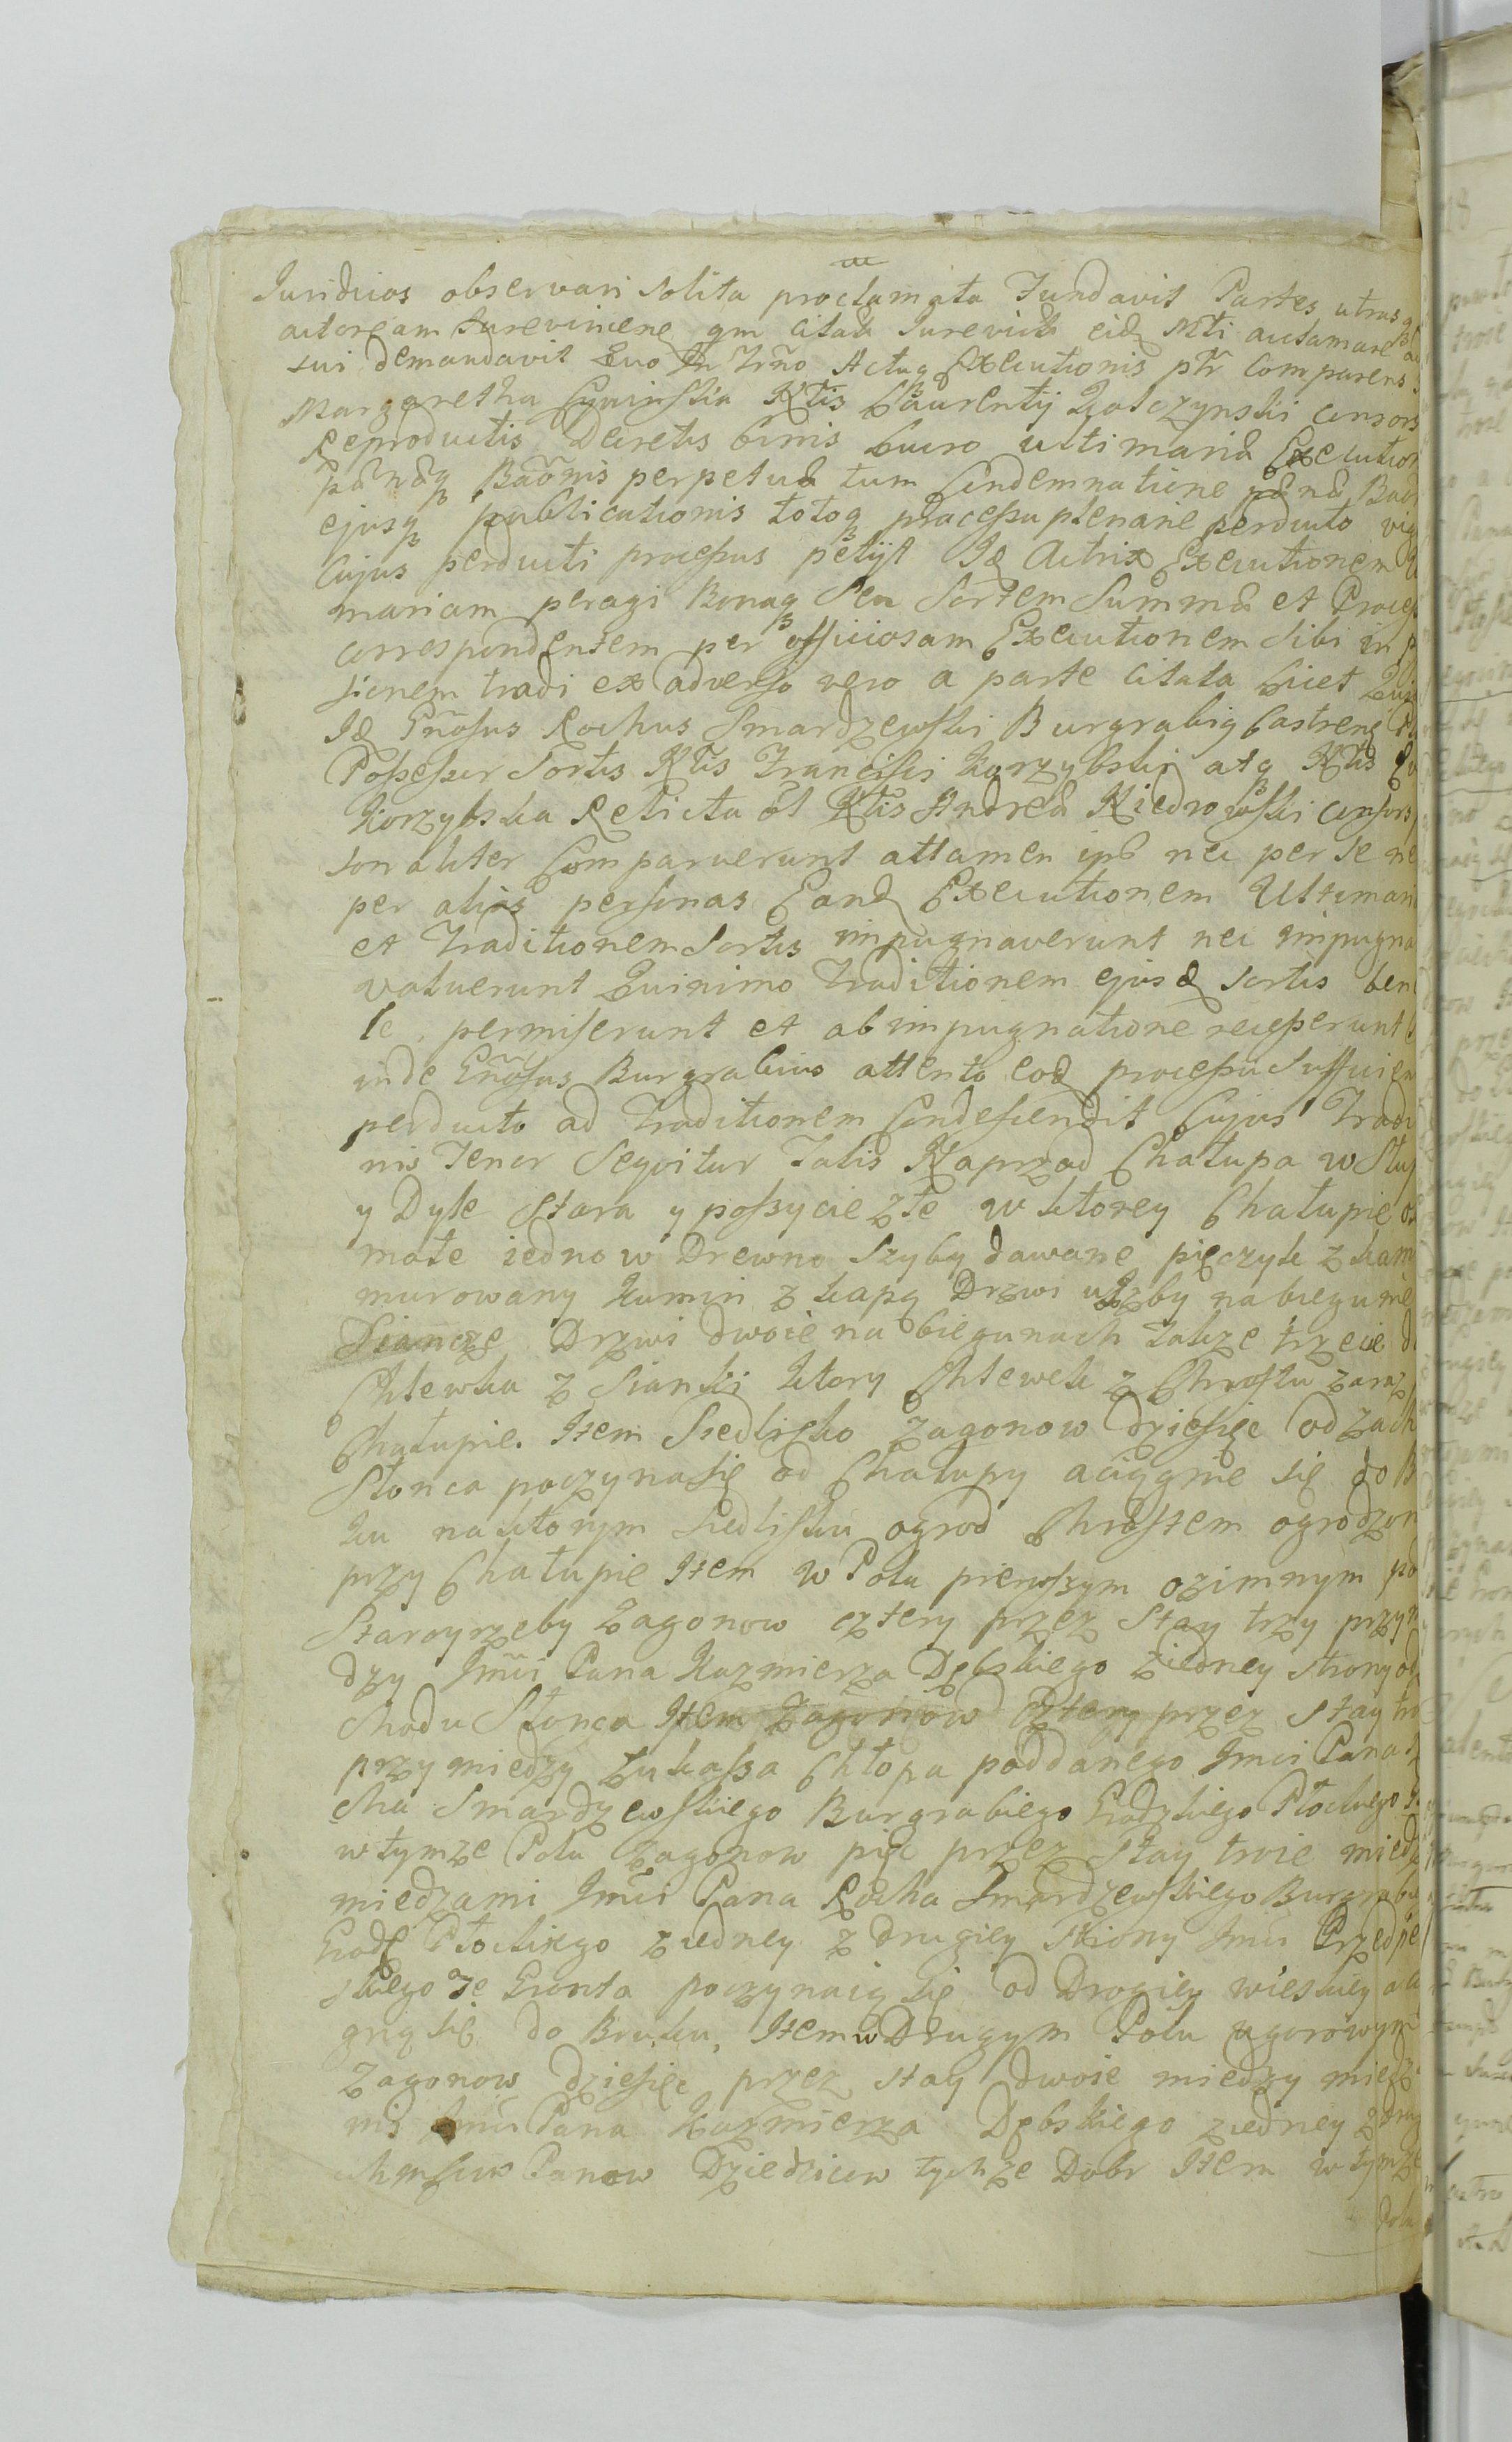 Juridicos observari solita proclamata Fundavit Partes utrasq
actoream Jurevincene qm citata Jurevicta eidq Mti acclamare
sui demandavit Quo In Trno Actuq Executionis ptr Comparens
Margaretha Kltis Laurentij consors
Reproductis Decretis binis Lucro ultimaria Execution
pænæq Baõnis perpetuæ tum Condemnatione pænæ Baõ
ejusq publicationis totoq processu plenarie perducto vig
Cujus perducti processus petijt Id Actrix Executionem U
mariam peragi Bonaq Seu Sortem Summæ et Process
correspondentem per officiosam Executionem Sibi in P
sionem tradi ex adverso vero a parte Citata Licet
Id Gñosus Rochus Smardzewski Burgrabiq Castrenq P
Possessor Sortis Kltis Francisci Korzybski atq Kltis
Korzybska Relicta ol Kltis Andreæ Kiedrowski consors
sonaliter Comparuerunt attamen ipsi nec per se ne
per alias personas Eandq Executionem Ultimari
et Traditionem Sortis impugnaverunt nec impugna
valuerunt Quinimo Traditionem ejusdq Sortis ben
le permiserunt et ab impugnatione recesserunt
inde Gñosus Burgrabius attento eodq processu Sufficien
perducto ad Traditionem Condescendit Cujus Tradi
nis Tenor Sequitur Talis Naprzod Chałupa w Słup
y Dyle Stara y poszycie złe w ktorey Chałupie ok
małe iedno w Drewno Szyby dawane pieczyk z kam
murowany Kumin z kapą Drzwi u Izby na biegunie
Sianczę Drzwi dwoie na biegunach także trzecie d
Chlewka z Sianki ktory Chlewek z Chrostu zaraz
Chałupie. Item Siedlisko zagonow dziesięc od zach
Słonca poczyna się od Chałupy aciągnie się do B
ku na ktorym Siedlisku ogrod Chrostem ogrodzon
przy Chałupie Item w Polu pierwszym ozimnym po
zagonow cztery przez Stay trzy przy
dzy Jmci Pana Kazmierza Dębskiego ziedney strony od
chodu Słonca Item Zagonow Cztery przez Stay tro
przy miedzy Łukasza Chłopa poddanego Jmci Pana
cha Smardzewskiego Burgrabiego Grodzkiego Płockiego
w tymze Polu zagonow pięc przez Stay troie miedz
miedzami Jmci Pana Rocha Smardzewskiego Burgrabi
Grodz Płockiego ziedney z drugiey Strony Jmci Przedpe
skiego ze Gronta poczynaią się od Drogiey wieskiey a c
gną się do Bruku, Item w Drugym Polu ugorowym
Zagonow dziesięc przez stay dwoie miedzy miedz
mi Jmci Pana Kazmierza Dębskiego ziedney z drug
Panow Dziedzicow tychze Dobr Item w tymze
Polu